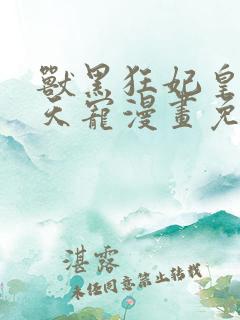 獸黑狂妃皇
天寵漫畫免
湛露
未經同意禁止轉載